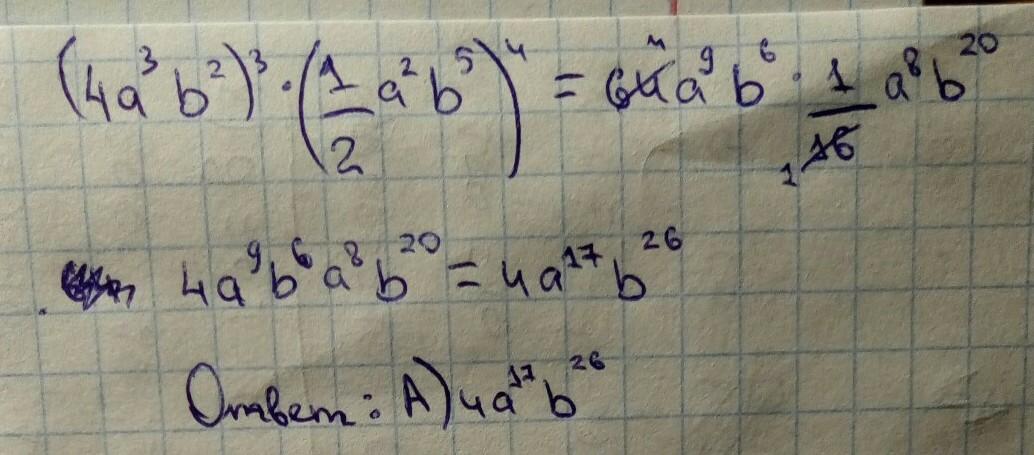 (4a³b²)³ · (1/2 a²b⁵)⁴ = 64 4 a⁹b⁶ · 1/16 1 a⁸b²⁰
4a⁹b⁶a⁸b²⁰ = 4a¹⁷b²⁶
Ответ: А) 4a¹⁷b²⁶